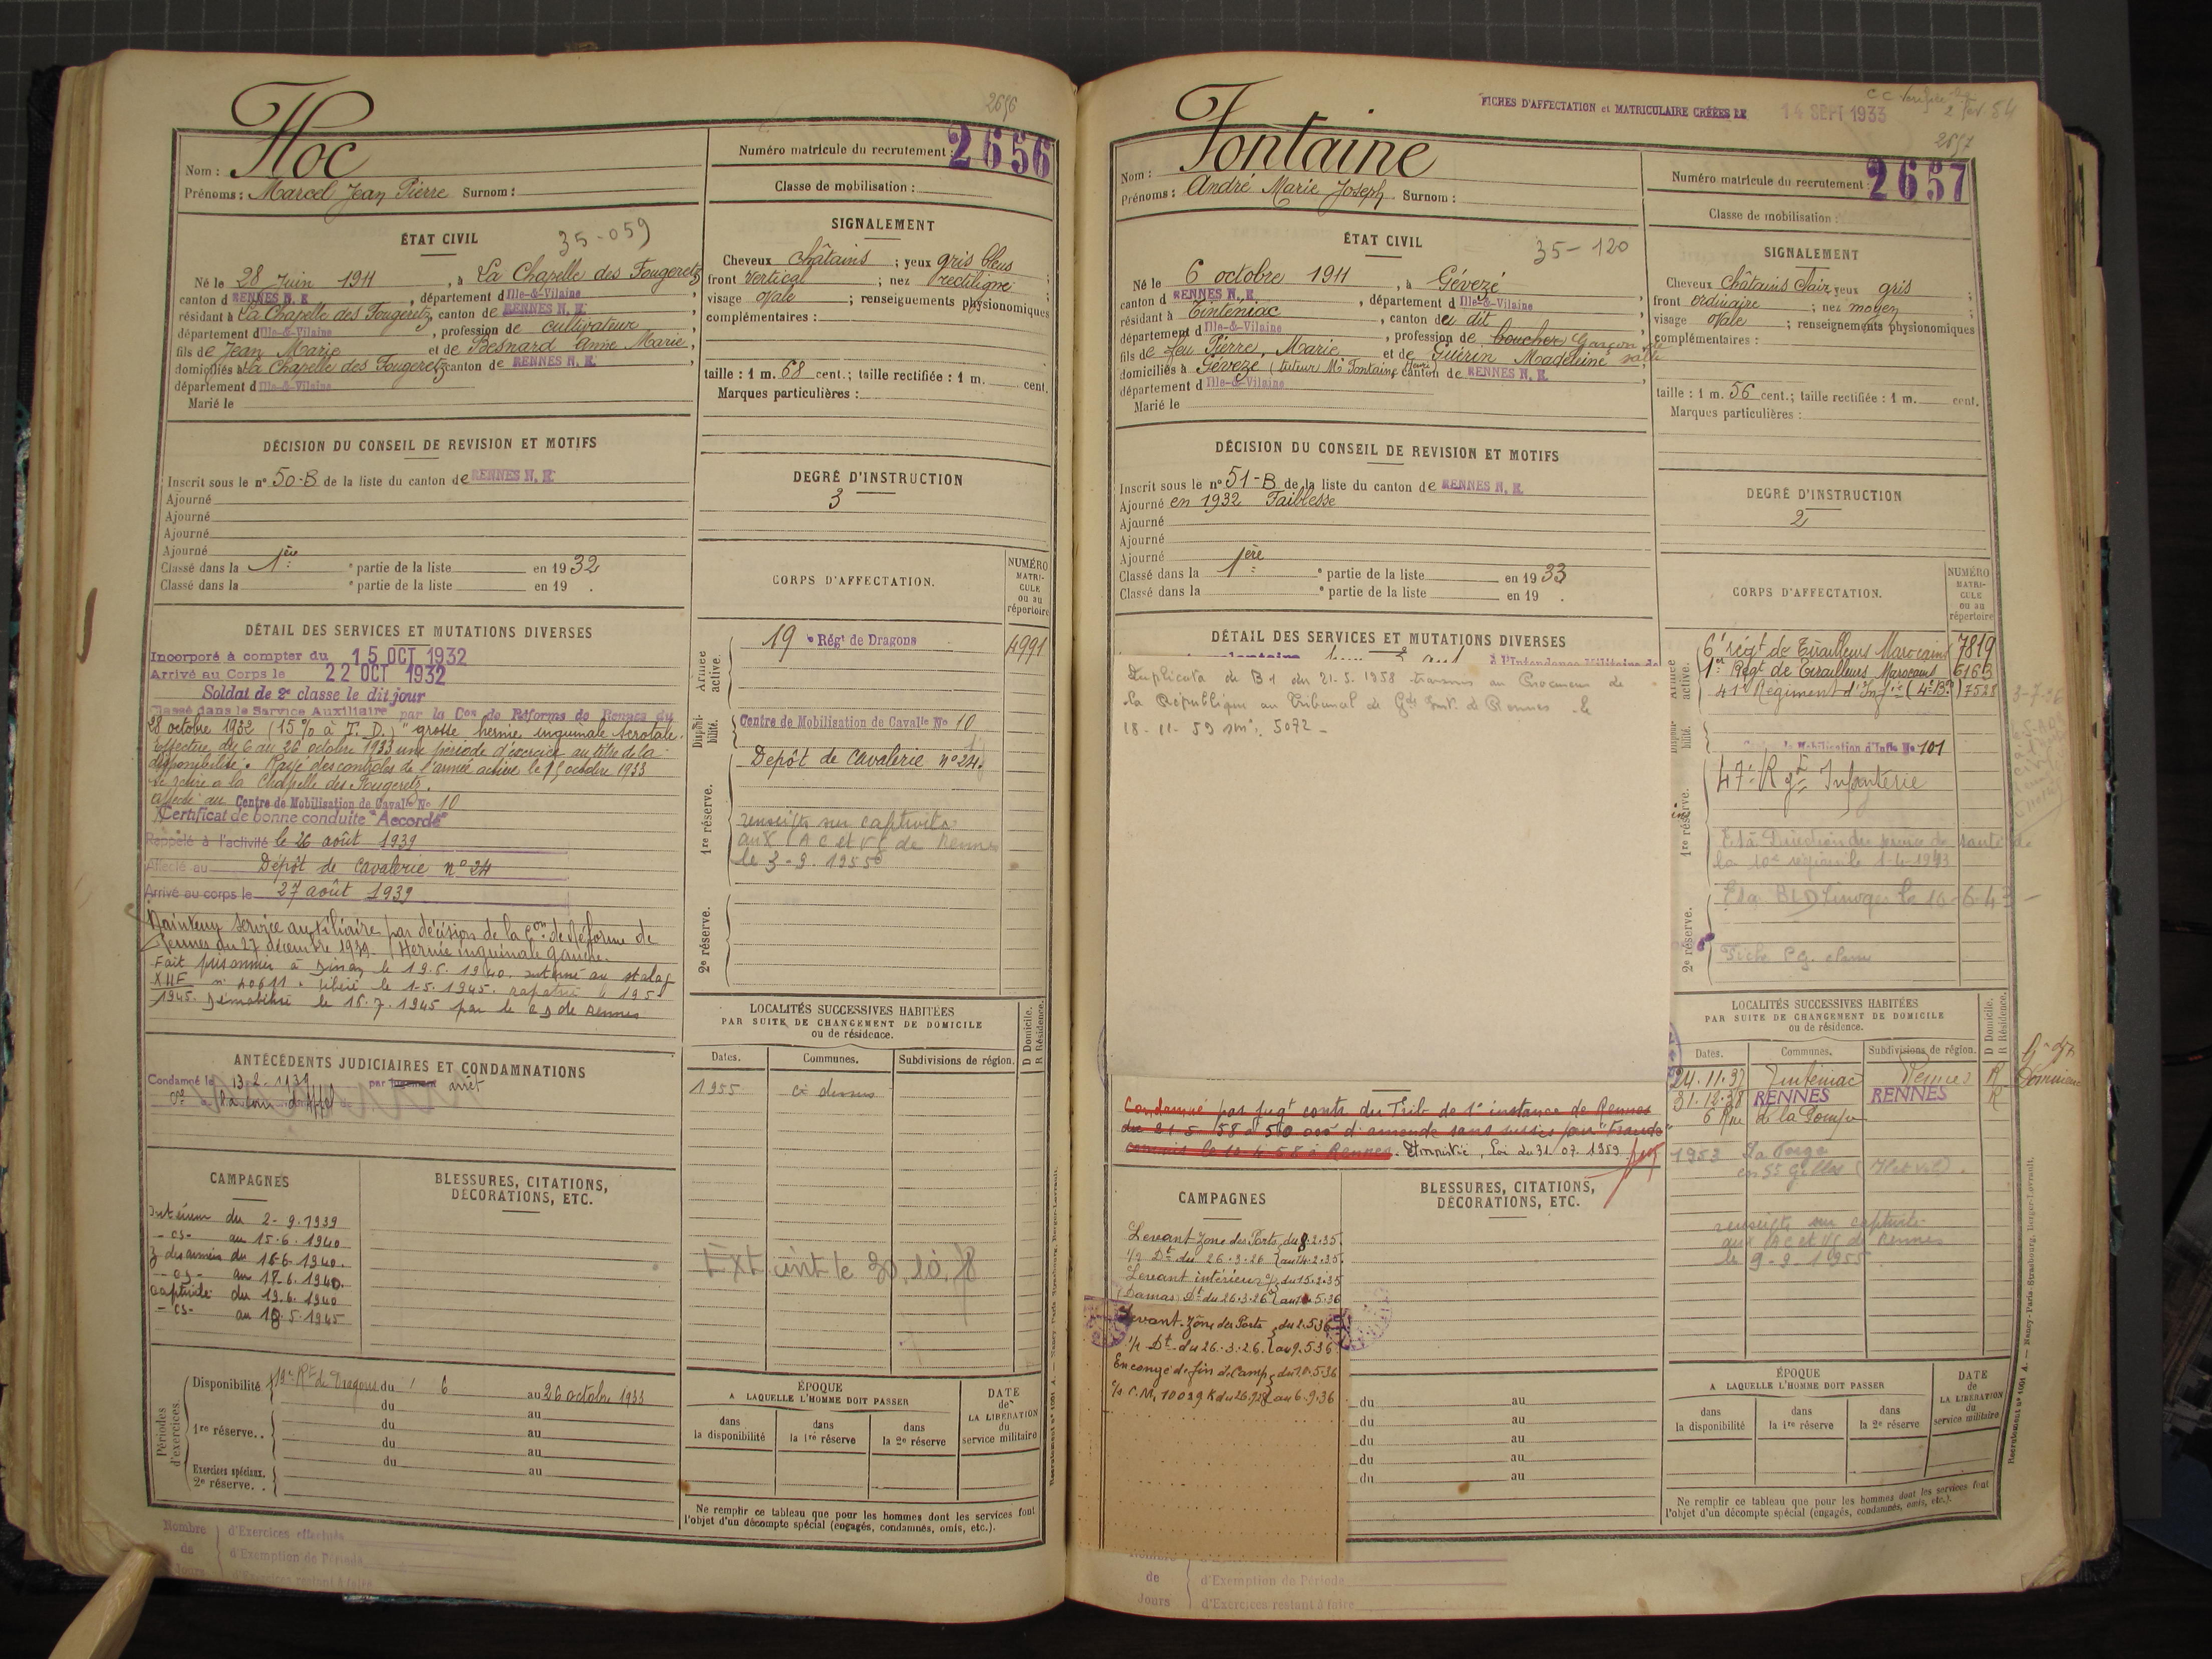 2656
Hoc
Nom :
Prénoms : Marcel Jean Pierre Surnom :
Numéro matricule du recrutement : 2656
Classe de mobilisation :
ÉTAT CIVIL
35-059
Né le 28 Juin 1911, à La Chapelle des Fougeretz
canton d RENNES N. E., département d Ille-&-Vilaine
résidant à La Chapelle des Fougeretz, canton de RENNES N. E.
département d Ille-&-Vilaine, profession de cultivateur
fils de Jean Marie et de Besnard Anne Marie,
domiciliés à La Chapelle des Fougeretz canton de RENNES N. E.
département d Ille-&-Vilaine
Marié le
SIGNALEMENT
Cheveux châtains ; yeux gris bleus
front vertical ; nez rectiligne
visage Ovale ; renseignements physionomiques
complémentaires :
taille : 1 m. 68 cent.; taille rectifiée : 1 m. cent.
Marques particulières :
DÉCISION DU CONSEIL DE REVISION ET MOTIFS
Inscrit sous le n° 50-B de la liste du canton de RENNES N. E.
Ajourné
Ajourné
Ajourné
Ajourné
Classé dans la 1ère partie de la liste en 1932
Classé dans la partie de la liste en 19 .
DEGRÉ D'INSTRUCTION
3
DÉTAIL DES SERVICES ET MUTATIONS DIVERSES
Incorporé à compter du 15 OCT 1932
Arrivé au Corps le 22 OCT 1932
Soldat de 2e classe le dit jour
Classé dans le Service Auxiliaire par la Con de Réforme de Rennes du
28 octobre 1932 (15% à T. D.) "grosse hernie inguinale scrotale.
Effectue du 6 au 26 octobre 1933 une période d'exercice au titre de la
disponibilité. Rayé des contrôles de l'armée active le 15 octobre 1933
se retire à la Chapelle des Fougeretz.
Affecté au Centre de Mobilisation de Cavalle No 10
Certificat de bonne conduite "Accordé"
Rappelé à l'activité le 26 août 1939
Affecté au Dépôt de Cavalerie n° 24
Arrivé au corps le 27 août 1939
Maintenu service auxiliaire par décision de la Con de Réforme de
Rennes du 27 décembre 1939. (Hernie inguinale gauche.
Fait prisonnier à Dinan le 19.6.1940. interné au stalag
libéré le 1-5.1945. rapatrié le 19 5
1945. Démobilisé le 16.7.1945 par le CD de Rennes
CORPS D'AFFECTATION.
NUMÉRO MATRICULE ou au répertoire
Armée active.
19e Régt de Dragons 4991
Disponibilité.
Centre de Mobilisation de Cavalle No 10
Dépôt de Cavalerie n° 24.
1re réserve.
renseigts sur captivité
aux AC et VG de Rennes
le 3-9.1955
2e réserve.
ANTÉCÉDENTS JUDICIAIRES ET CONDAMNATIONS
Condamné le 13.2.1931 par jugement arrêt
LOCALITÉS SUCCESSIVES HABITÉES
PAR SUITE DE CHANGEMENT DE DOMICILE
ou de résidence.
D Domicile. R Résidence.
Dates. Communes. Subdivisions de région.
1955 ci dessus
CAMPAGNES
Intérieur du 2-9.1939
-cs- au 15.6.1940
Z des armées du 16-6-1940.
-cs- au 18.6.1940.
Captivité du 19.6.1940
-cs- au 18.5.1945
BLESSURES, CITATIONS,
DÉCORATIONS, ETC.
Périodes d'exercices.
Disponibilité 19e Rt de Dragons du 6 au 26 octobre 1933
du au
1re réserve.. du au
du au
du au
Exercices spéciaux. au
2e réserve. .
ÉPOQUE
A LAQUELLE L'HOMME DOIT PASSER
dans la disponibilité
dans la 1re réserve
dans la 2e réserve
DATE de LA LIBÉRATION du service militaire
Ne remplir ce tableau que pour les hommes dont les services font
l'objet d'un décompte spécial (engagés, condamnés, omis, etc.).
Nombre de Jours
d'Exercices effectués
d'Exemption de Période
d'Exercices restant à faire
FICHES D'AFFECTATION et MATRICULAIRE CRÉÉES LE 14 SEPT 1933
2657
Fontaine
Nom :
Prénoms : André Marie Joseph Surnom :
Numéro matricule du recrutement : 2657
Classe de mobilisation :
ÉTAT CIVIL
35-120
Né le 6 octobre 1911, à Gévezé
canton d RENNES N. E., département d Ille-&-Vilaine
résidant à Tinténiac, canton du dit
département d Ille-&-Vilaine, profession de boucher Garçon de salle
fils de feu Pierre, Marie et de Guérin Madeleine
domiciliés à Gévezé (tuteur Mr Fontaine Henri) canton de RENNES N. E.
département d Ille-&-Vilaine
Marié le
SIGNALEMENT
Cheveux châtains clair yeux gris
front ordinaire ; nez moyen
visage Ovale ; renseignements physionomiques
complémentaires :
taille : 1 m. 56 cent.; taille rectifiée : 1 m. cent.
Marques particulières :
DÉCISION DU CONSEIL DE REVISION ET MOTIFS
Inscrit sous le n° 51-B de la liste du canton de RENNES N. E.
Ajourné en 1932 Faiblesse
Ajourné
Ajourné
Ajourné
Classé dans la 1ère partie de la liste en 1933
Classé dans la partie de la liste en 19 .
DEGRÉ D'INSTRUCTION
2
DÉTAIL DES SERVICES ET MUTATIONS DIVERSES
Duplicata du B1 du 21.5.1958 transmis au Procureur de
la République au Tribunal de Gde Inst. de Rennes le
18-11-59 sn° 5072 -
CORPS D'AFFECTATION.
NUMÉRO MATRICULE ou au répertoire
6e régt de Tirailleurs Marocains 7819
1er Régt de Tirailleurs Marocains 6163
41e Régiment d'Infie (4e Bon) 7528
Mobilisation d'Infie No 101
47e Rgt Infanterie
1re réserve.
Età Direction du service de santé de
la 10e région le 1-4-1943
BCD Limoges le 10-6-43
2e réserve.
Condamné par jugt contr du Trib de 1e instance de Rennes
du 21-5-58 à 50 000 d'amende sans sursis pour "Fraude"
commis le à Rennes. Amnistié, Loi du 31.07.1959
LOCALITÉS SUCCESSIVES HABITÉES
PAR SUITE DE CHANGEMENT DE DOMICILE
ou de résidence.
D Domicile. R Résidence.
Dates. Communes. Subdivisions de région.
24.11.37 Tinténiac Rennes R
31.12.38 RENNES RENNES R
6 Rue de la Pompe
1953 La Forge
en St Gilles (Ilet Vil).
renseigts sur captivité
aux AC et VG de Rennes
le 9-9.1955
CAMPAGNES
Levant Zone des Ports du 8.2.35
1/2 Dt du 26.3.26 au 14.2.35
Levant intérieur du 15.2.35
(Damas) Dt du 26.3.26 au 1.5.36
Levant Zône des Ports du 2.5.36
1/2 Dt du 26.3.26. au 9.5.36
En congé de fin de Camp du 10.5.36
C.M. 10039 K du 26.9.28 au 6.9.36
BLESSURES, CITATIONS,
DÉCORATIONS, ETC.
du au
du au
du au
du au
du au
ÉPOQUE
A LAQUELLE L'HOMME DOIT PASSER
dans la disponibilité
dans la 1re réserve
dans la 2e réserve
DATE de LA LIBÉRATION du service militaire
Ne remplir ce tableau que pour les hommes dont les services font
l'objet d'un décompte spécial (engagés, condamnés, omis, etc.).
de Jours
d'Exemption de Période
d'Exercices restant à faire